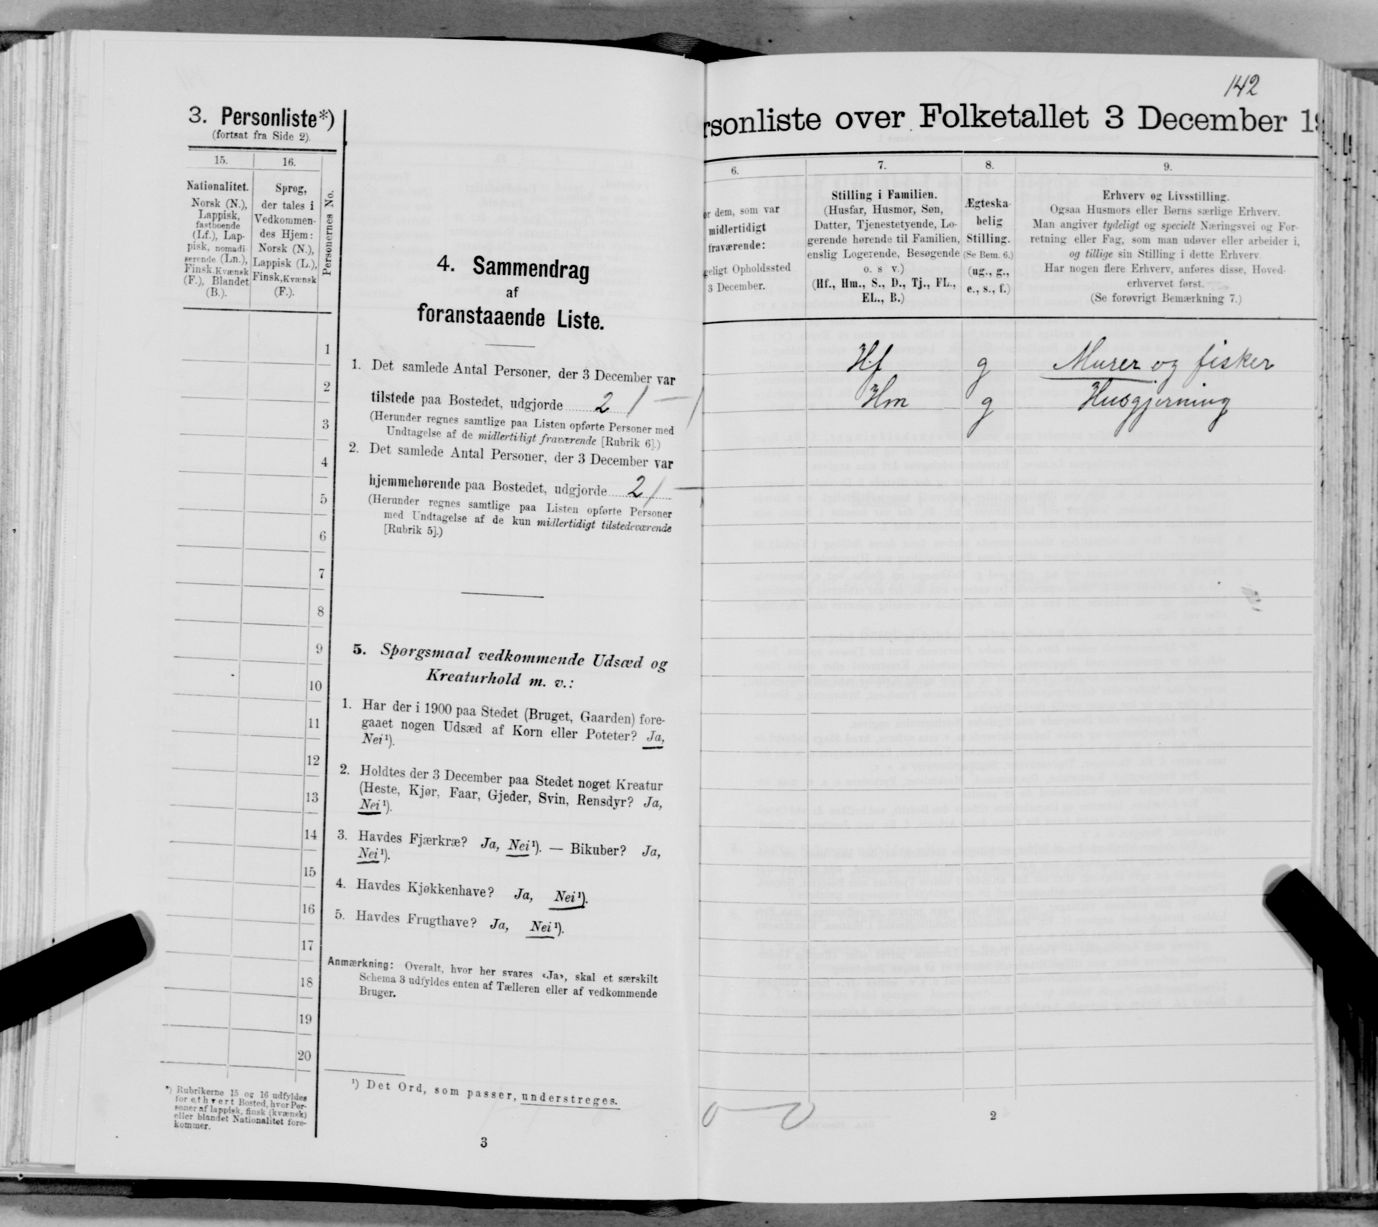 3. Personliste*)
(fortsat fra Side 2).
15.
16.
Nationalitet.
Norsk (N.),
Lappisk,
fastboende
(Lf.), Lap-
pisk, nomadi-
serende (Ln.),
Finsk, Kvænsk
(F.), Blandet
(B.).
Sprog,
der tales i
Vedkommen-
des Hjem:
Norsk (N.),
Lappisk (L.),
Finsk, Kvænsk
(F.).
Personernes No.
1
2
3
4
5
6
7
8
9
10
11
12
13
14
15
16
17
18
19
20
*) Rubrikerne 15 og 16 udfyldes
for ethvert Bosted, hvor Per-
soner af lappisk, finsk (kvænsk)
eller blandet Nationalitet fore-
kommer.
4. Sammendrag
af
foranstaaende Liste.
1. Det samlede Antal Personer, der 3 December var
tilstede paa Bostedet, udgjorde 2 1 — 1
(Herunder regnes samtlige paa Listen opførte Personer med
Undtagelse af de midlertidigt fraværende [Rubrik 6].)
2. Det samlede Antal Personer, der 3 December var
hjemmehørende paa Bostedet, udgjorde 2 1 —
(Herunder regnes samtlige paa Listen opførte Personer
med Undtagelse af de kun midlertidigt tilstedeværende
[Rubrik 5].)
5. Spørgsmaal vedkommende Udsæd og
Kreaturhold m. v.:
1. Har der i 1900 paa Stedet (Bruget, Gaarden) fore-
gaaet nogen Udsæd af Korn eller Poteter? Ja,
Nei¹).
2. Holdtes der 3 December paa Stedet noget Kreatur
(Heste, Kjør, Faar, Gjeder, Svin, Rensdyr? Ja,
Nei¹).
3. Havdes Fjærkræ? Ja, Nei¹). — Bikuber? Ja,
Nei¹).
4. Havdes Kjøkkenhave? Ja, Nei¹).
5. Havdes Frugthave? Ja, Nei¹).
Anmærkning: Overalt, hvor her svares «Ja», skal et særskilt
Schema 3 udfyldes enten af Tælleren eller af vedkommende
Bruger.
¹) Det Ord, som passer, understreges.
3
142
rsonliste over Folketallet 3 December 19
6.
7.
8.
9.
or dem, som var
midlertidigt
fraværende:
geligt Opholdssted
3 December.
Stilling i Familien.
(Husfar, Husmor, Søn,
Datter, Tjenestetyende, Lo-
gerende hørende til Familien,
enslig Logerende, Besøgende
o. s v.)
(Hf., Hm., S., D., Tj., FL.,
EL., B.)
Ægteska-
belig
Stilling.
(Se Bem. 6.)
(ug., g.,
e., s., f.)
Erhverv og Livsstilling.
Ogsaa Husmors eller Børns særlige Erhverv.
Man angiver tydeligt og specielt Næringsvei og For-
retning eller Fag, som man udøver eller arbeider i,
og tillige sin Stilling i dette Erhverv.
Har nogen flere Erhverv, anføres disse, Hoved-
erhvervet først.
(Se forøvrigt Bemærkning 7.)
Hf g Murer og fisker
Hm g Husgjerning
0 — 0
2